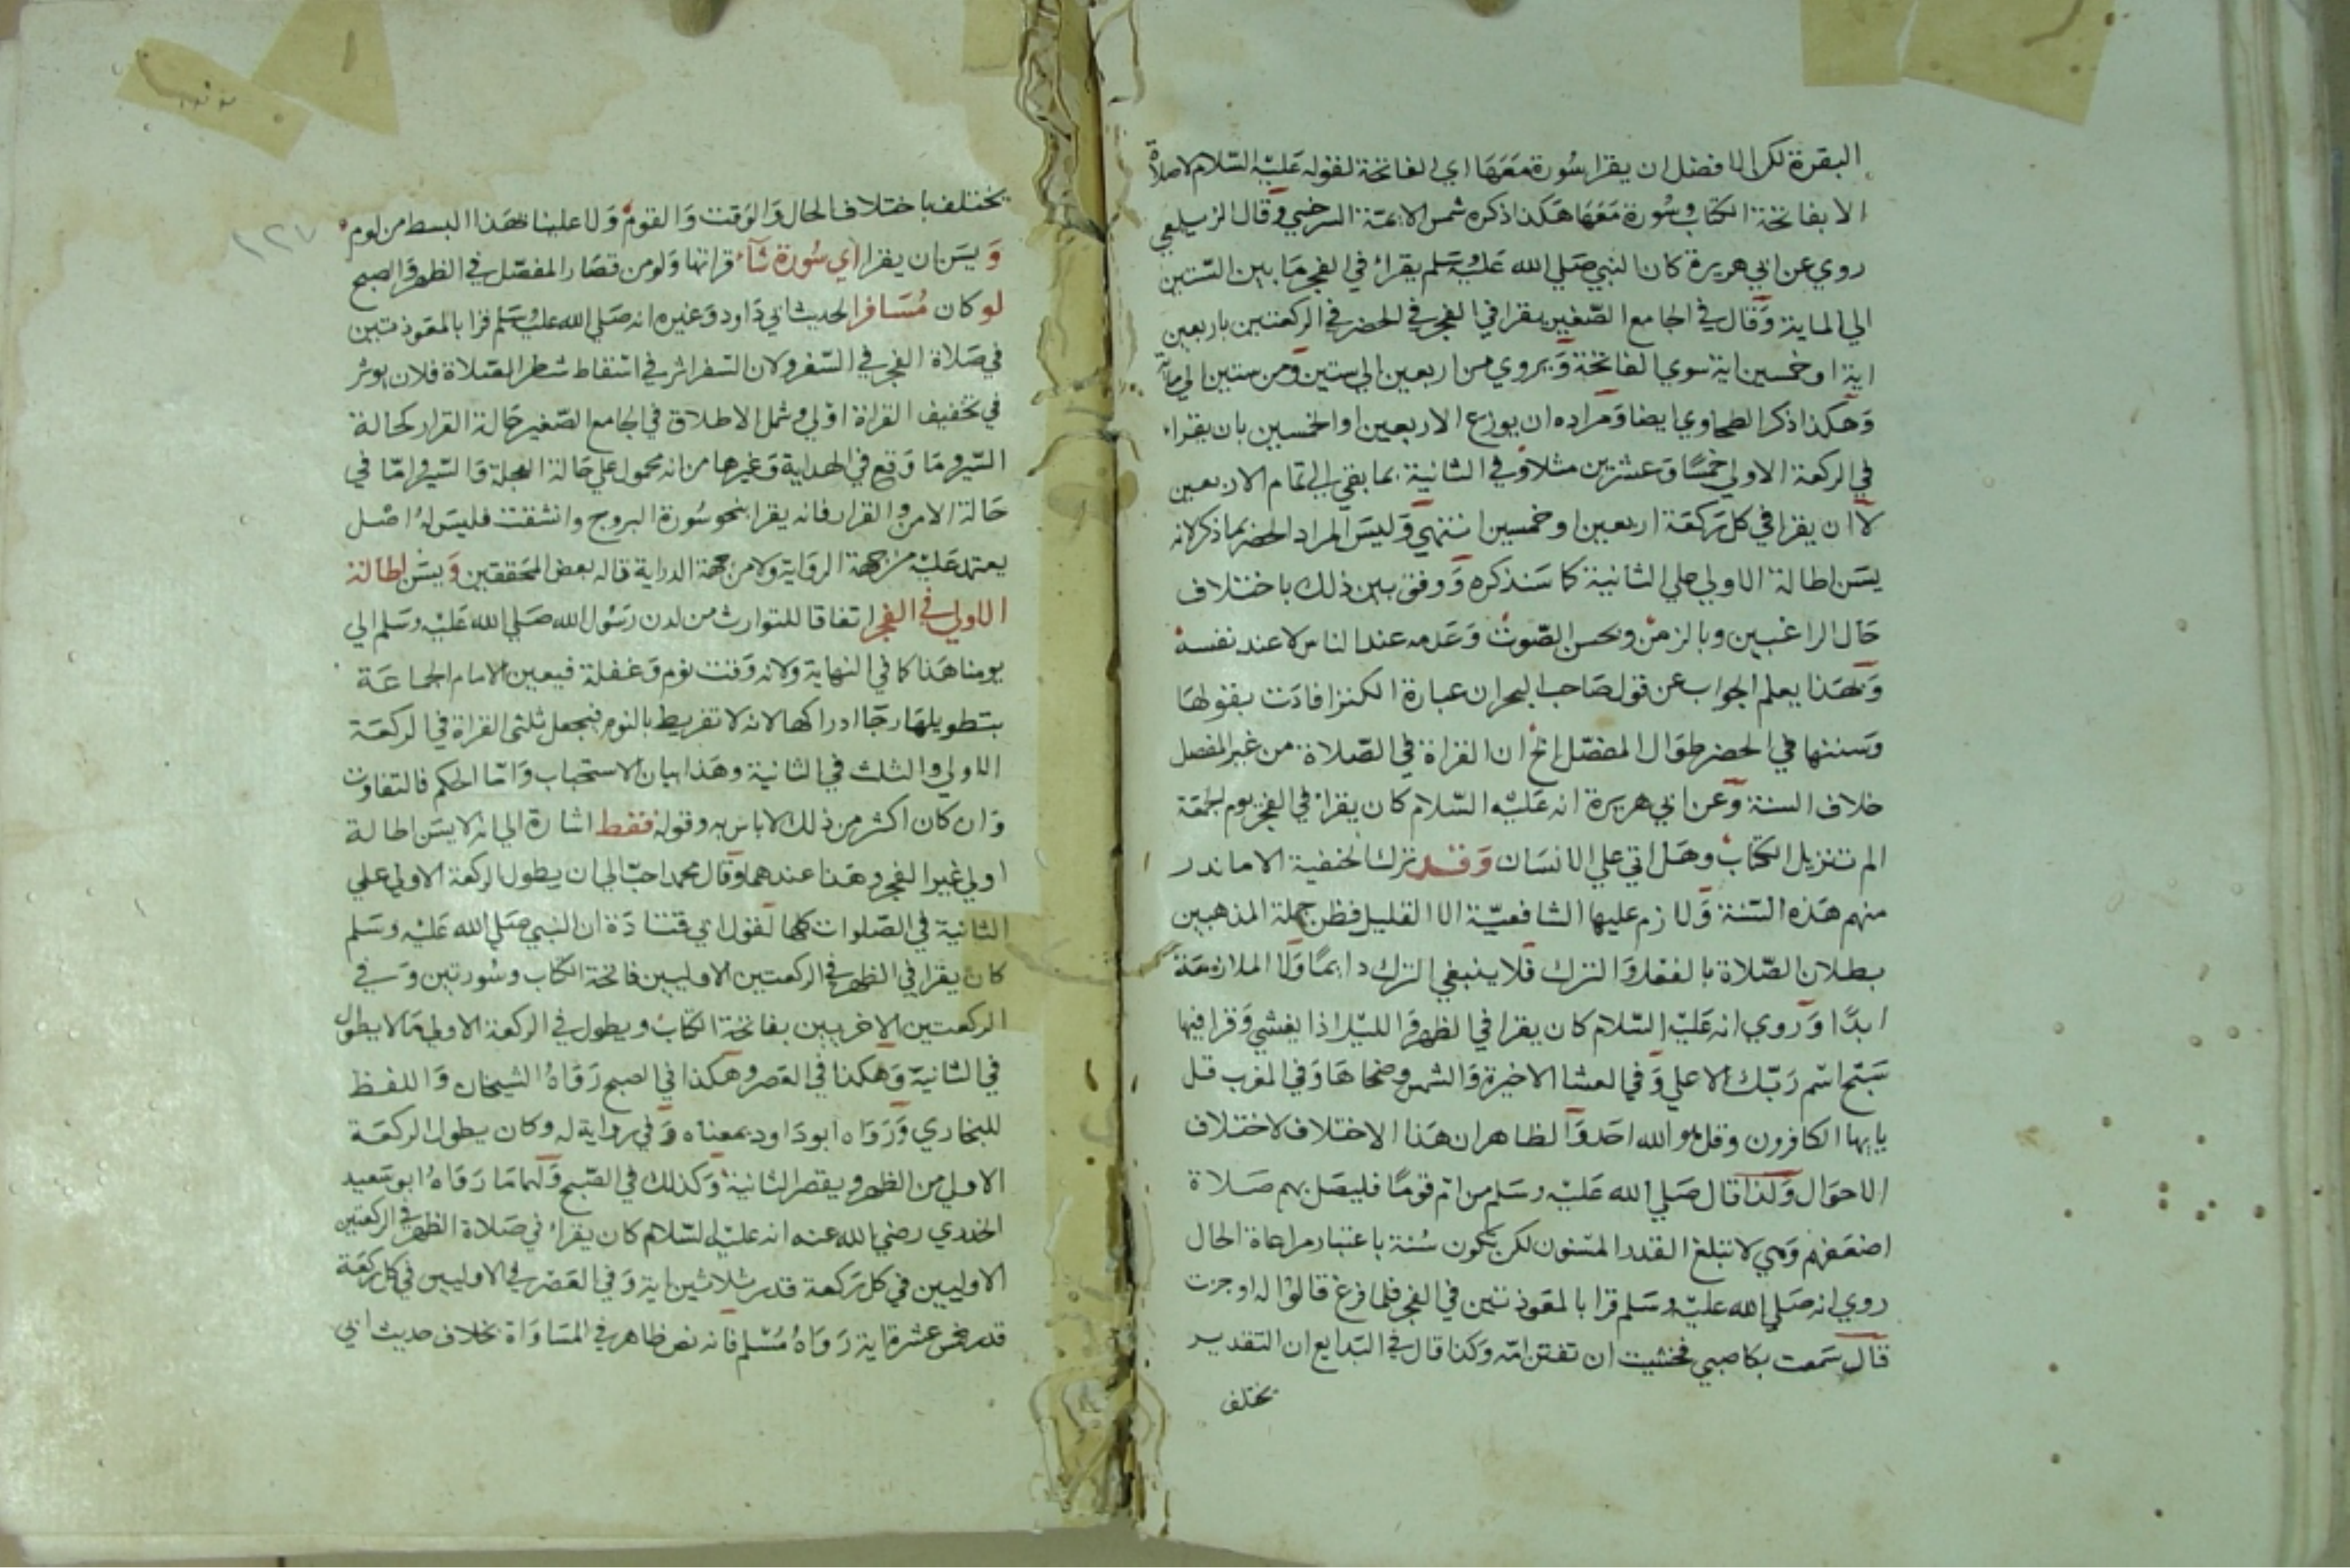 البقرة لكن الافضل ان يقرا سورة معها اي الفاتحة لقوله عليه السلام لا صلاة
الا بفاتحة الكتاب وسورة معها هكذا ذكره شمس الائمة السرخسي وقال الزيلعي
روي عن ابي هريرة كان النبي صلي الله عليه وسلم يقراء في الفجر ما بين الستين
الي الماية وقال في الجامع الصغير يقرا في الفجر في الحضر في الركعتين باربعين
اية او خمسين اية سوي الفاتحة ويروي من اربعين الي ستين ومن ستين الي ماية
وهكذا ذكر الطحاوي ايضا ومراده ان يوزع الاربعين او الخمسين بان يقراء
في الركعة الاولي خمسًا وعشرين مثلا وفي الثانية بما بقي الي تمام الاربعين
لا ان يقرا في كل ركعة اربعين او خمسين انتهي وليس المراد الحضر بما ذكر لانه
يسن اطالة الاولي علي الثانية كما سنذكره ووفق بين ذلك باختلاف
حال الراغبين وبالزمن وبحسن الصوت وعدمه عند الناس لا عند نفسه
وبهذا يعلم الجواب عن قول صاحب البحر ان عبارة الكنز افادت بقولها
وسننها في الحضر طوال المفصل الخ ان القراة في الصلاة من غير المفصل
خلاف السنة وعن ابي هريرة انه عليه السلام كان يقراء في الفجر يوم الجمعة
الم تنزيل الكتاب وهل اتي علي الانسان وقد ترك الحنفية الا ما ندر
منهم هذه السنة ولازم عليها الشافعية الا القليل فظن جهلة المذهبين
بطلان الصلاة بالفعل والترك فلا ينبغي الترك دايمًا ولا الملازمة
ابدًا وروي انه عليه السلام كان يقرا في الظهر والليل اذا يغشي وقرا فيها
سبح اسم ربك الاعلي وفي العشا الاخيرة والشمس وضحاها وفي المغرب قل
يايها الكافرون وقل هو الله احد والظاهر ان هذا الاختلاف لاختلاف
الاحوال ولذا قال صلي الله عليه وسلم من ام قومًا فليصل بهم صلاة
اضعفهم وهي لا تبلغ القدر المسنون لكن تكون سنة باعتبار مراعاة الحال
روي انه صلي الله عليه وسلم قرا بالمعوذتين في الفجر فلما فرغ قالوا له اوجزت
قال سمعت بكا صبي فخشيت ان تفتن امه وكذا قال في البدايع ان التقدير
يختلف
يختلف باختلاف الحال والوقت والقوم ولا علينا بهذا البسط من لوم
ويسن ان يقرا اي سورة شاء قراتها ولو من قصار المفصل في الظهر والصبح
لو كان مسافرا لحديث ابي داود وغيره انه صلي الله عليه وسلم قرا بالمعوذتين
في صلاة الفجر في السفر ولان السفر اثر في اسقاط شطر الصلاة فلان يوثر
في تخفيف القراة اولي وشمل الاطلاق في الجامع الصغير حالة القرار كحالة
السير وما وقع في الهداية وغيرها من انه محمول علي حالة العجلة والسير واما في
حالة الامن والقرار فانه يقرا بنحو سورة البروج وانشقت فليس له اصل
يعتمد عليه من جهة الرواية ولا من جهة الدراية قاله بعض المحققين ويسن اطالة
الاولي في الفجر اتفاقا للتوارث من لدن رسول الله صلي الله عليه وسلم الي
يومنا هذا كما في النهاية ولانه وقت نوم وغفلة فيعين الامام الجماعة
بتطويلها رجا ادراكها لانه لا تفريط بالنوم فيجعل ثلثي القراة في الركعة
الاولي والثلث في الثانية وهذا بيان الاستحباب واما الحكم فالتفاوت
وان كان اكثر من ذلك لا باس به وقوله فقط اشارة الي انه لا يسن اطالة
اولي غير الفجر وهذا عندهما وقال محمد احب الي ان يطول الركعة الاولي علي
الثانية في الصلوات كلها لقول ابي قتادة ان النبي صلي الله عليه وسلم
كان يقرا في الظهر في الركعتين الاوليين فاتحة الكتاب وسورتين وفي
الركعتين الاخريين بفاتحة الكتاب ويطول في الركعة الاولي ما لا يطول
في الثانية وهكذا في العصر وهكذا في الصبح رواه الشيخان واللفظ
للبخاري ورواه ابو داود بمعناه وفي رواية له وكان يطول الركعة
الاولي من الظهر ويقصر الثانية وكذلك في الصبح ولهما ما رواه ابو سعيد
الخدري رضي الله عنه انه عليه السلام كان يقراء في صلاة الظهر في الركعتين
الاوليين في كل ركعة قدر ثلاثين اية وفي العصر في الاوليين في كل ركعة
قدر خمس عشرة اية رواه مسلم فانه نص ظاهر في المساواة بخلاف حديث ابي